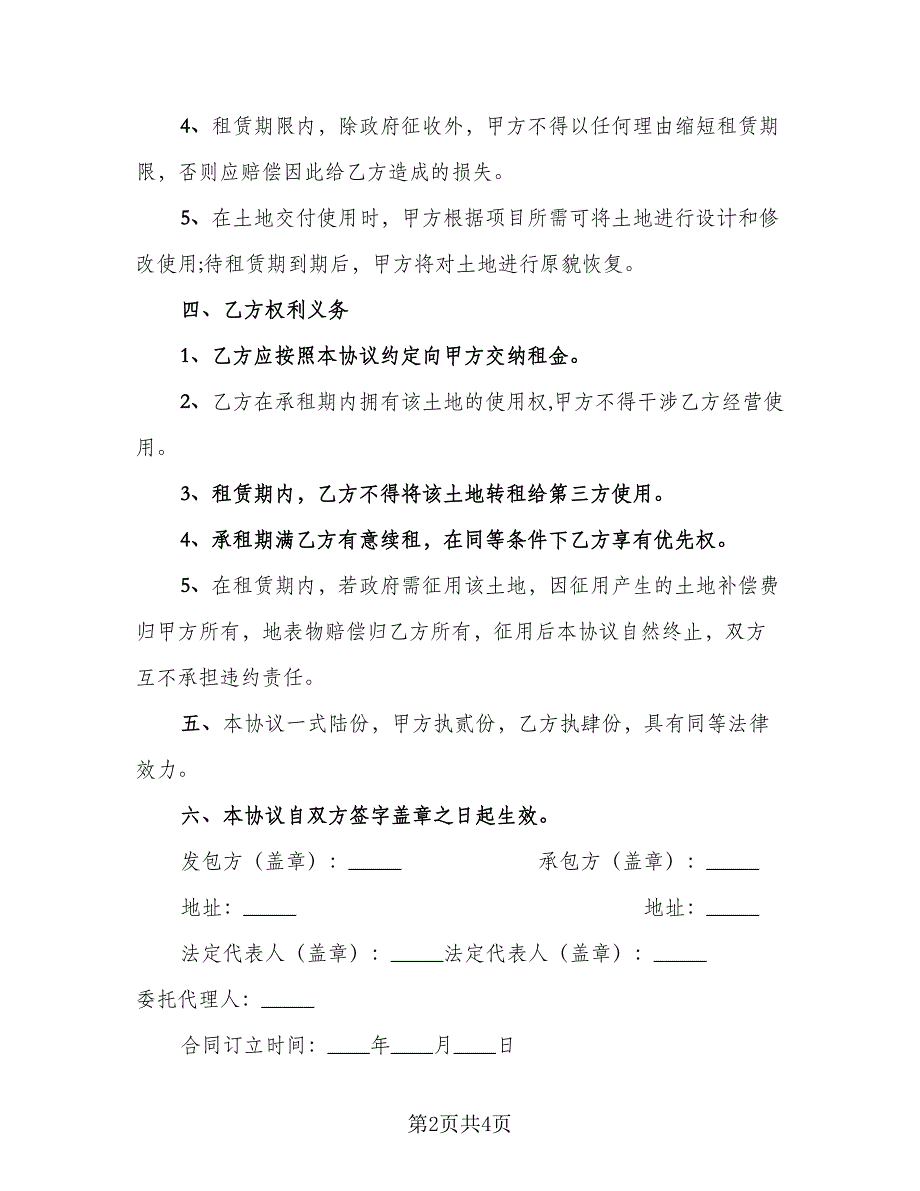 4、租赁期限内，除政府征收外，甲方不得以任何理由缩短租赁期
限，否则应赔偿因此给乙方造成的损失。
5、在土地交付使用时，甲方根据项目所需可将土地进行设计和修
改使用;待租赁期到期后，甲方将对土地进行原貌恢复。
四、乙方权利义务
1、乙方应按照本协议约定向甲方交纳租金。
2、乙方在承租期内拥有该土地的使用权,甲方不得干涉乙方经营使
用。
3、租赁期内，乙方不得将该土地转租给第三方使用。
4、承租期满乙方有意续租，在同等条件下乙方享有优先权。
5、在租赁期内，若政府需征用该土地，因征用产生的土地补偿费
归甲方所有，地表物赔偿归乙方所有，征用后本协议自然终止，双方
互不承担违约责任。
五、本协议一式陆份，甲方执贰份，乙方执肆份，具有同等法律
效力。
六、本协议自双方签字盖章之日起生效。
发包方（盖章）：_____ 承包方（盖章）：_____
地址：_____ 地址：_____
法定代表人（盖章）：_____法定代表人（盖章）：_____
委托代理人：_____
合同订立时间：____年____月____日
第2页共4页